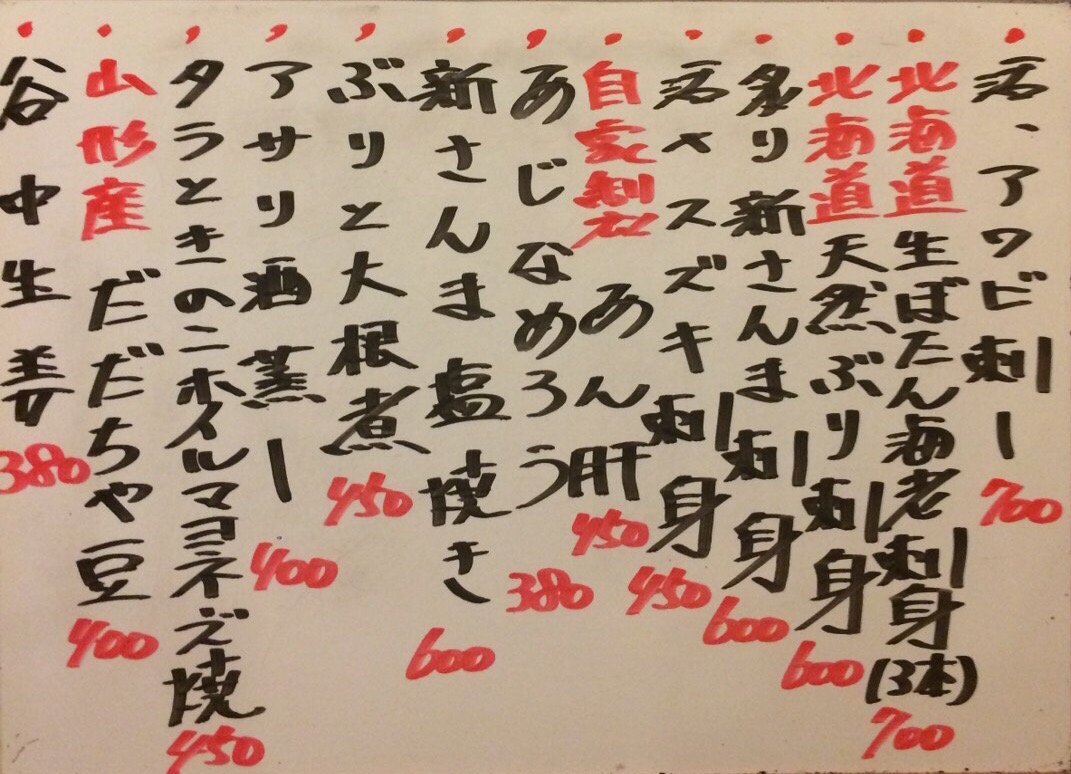 ・活、アワビ刺し 700
・北海道生ぼたん海老刺身(3本) 700
・北海道天然ぶり刺身 600
・炙り新さんま刺身 600
・活〆スズキ刺身 450
・自家製あん肝 450
・あじなめろう 380
・新さんま塩焼き 600
・ぶりと大根煮 450
・アサリ酒蒸し 400
・タラときのこホイルマヨネーズ焼 450
・山形産だだちゃ豆 400
・谷中生姜 380